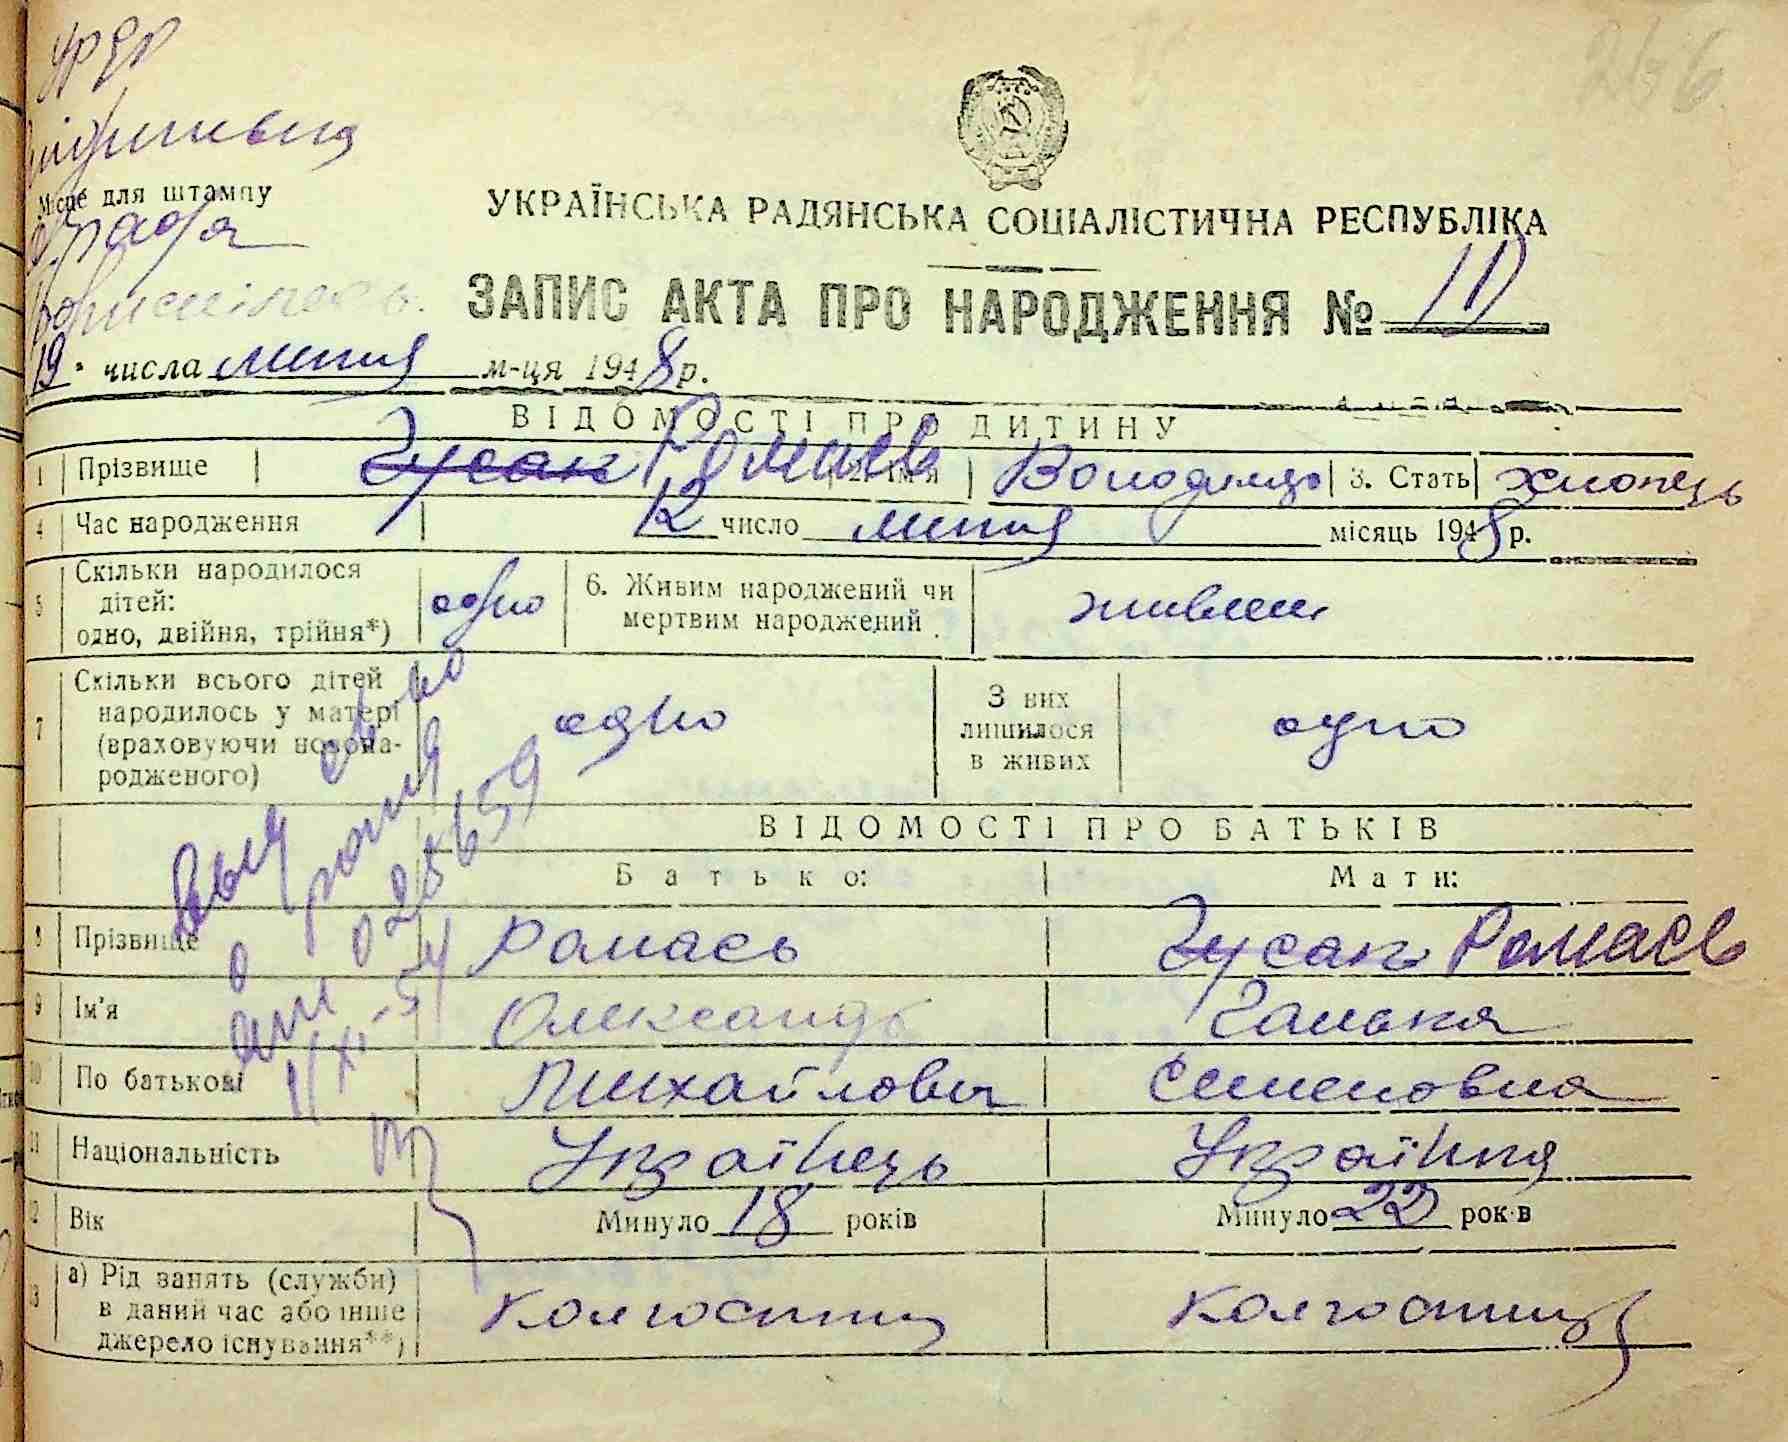 УРСР
266
Місце для штампу
УКРАЇНСЬКА РАДЯНСЬКА СОЦІАЛІСТИЧНА РЕСПУБЛІКА
ЗАПИС АКТА ПРО НАРОДЖЕННЯ № 11
19 числа липня м-ця 1948 р.
ВІДОМОСТІ ПРО ДИТИНУ
1 Прізвище Гусак Ромась 2. Ім'я Володимир 3. Стать хлопець
4 Час народження 12 число липня місяць 1948 р.
5 Скільки народилося дітей: одно, двійня, трійня*) одно 6. Живим народжений чи мертвим народжений живим
7 Скільки всього дітей народилось у матері (враховуючи новона-родженого) одно З них лишилося в живих одно
ВІДОМОСТІ ПРО БАТЬКІВ
Батько: Мати:
8 Прізвище Ромась Гусак Ромась
9 Ім'я Олександр Галька
10 По батькові Михайлович Семеновна
11 Національність Українець Українка
12 Вік Минуло 18 років Минуло 22 рок в
13 а) Рід занять (служби) в даний час або інше джерело існування**) Колгоспник Колгоспниця